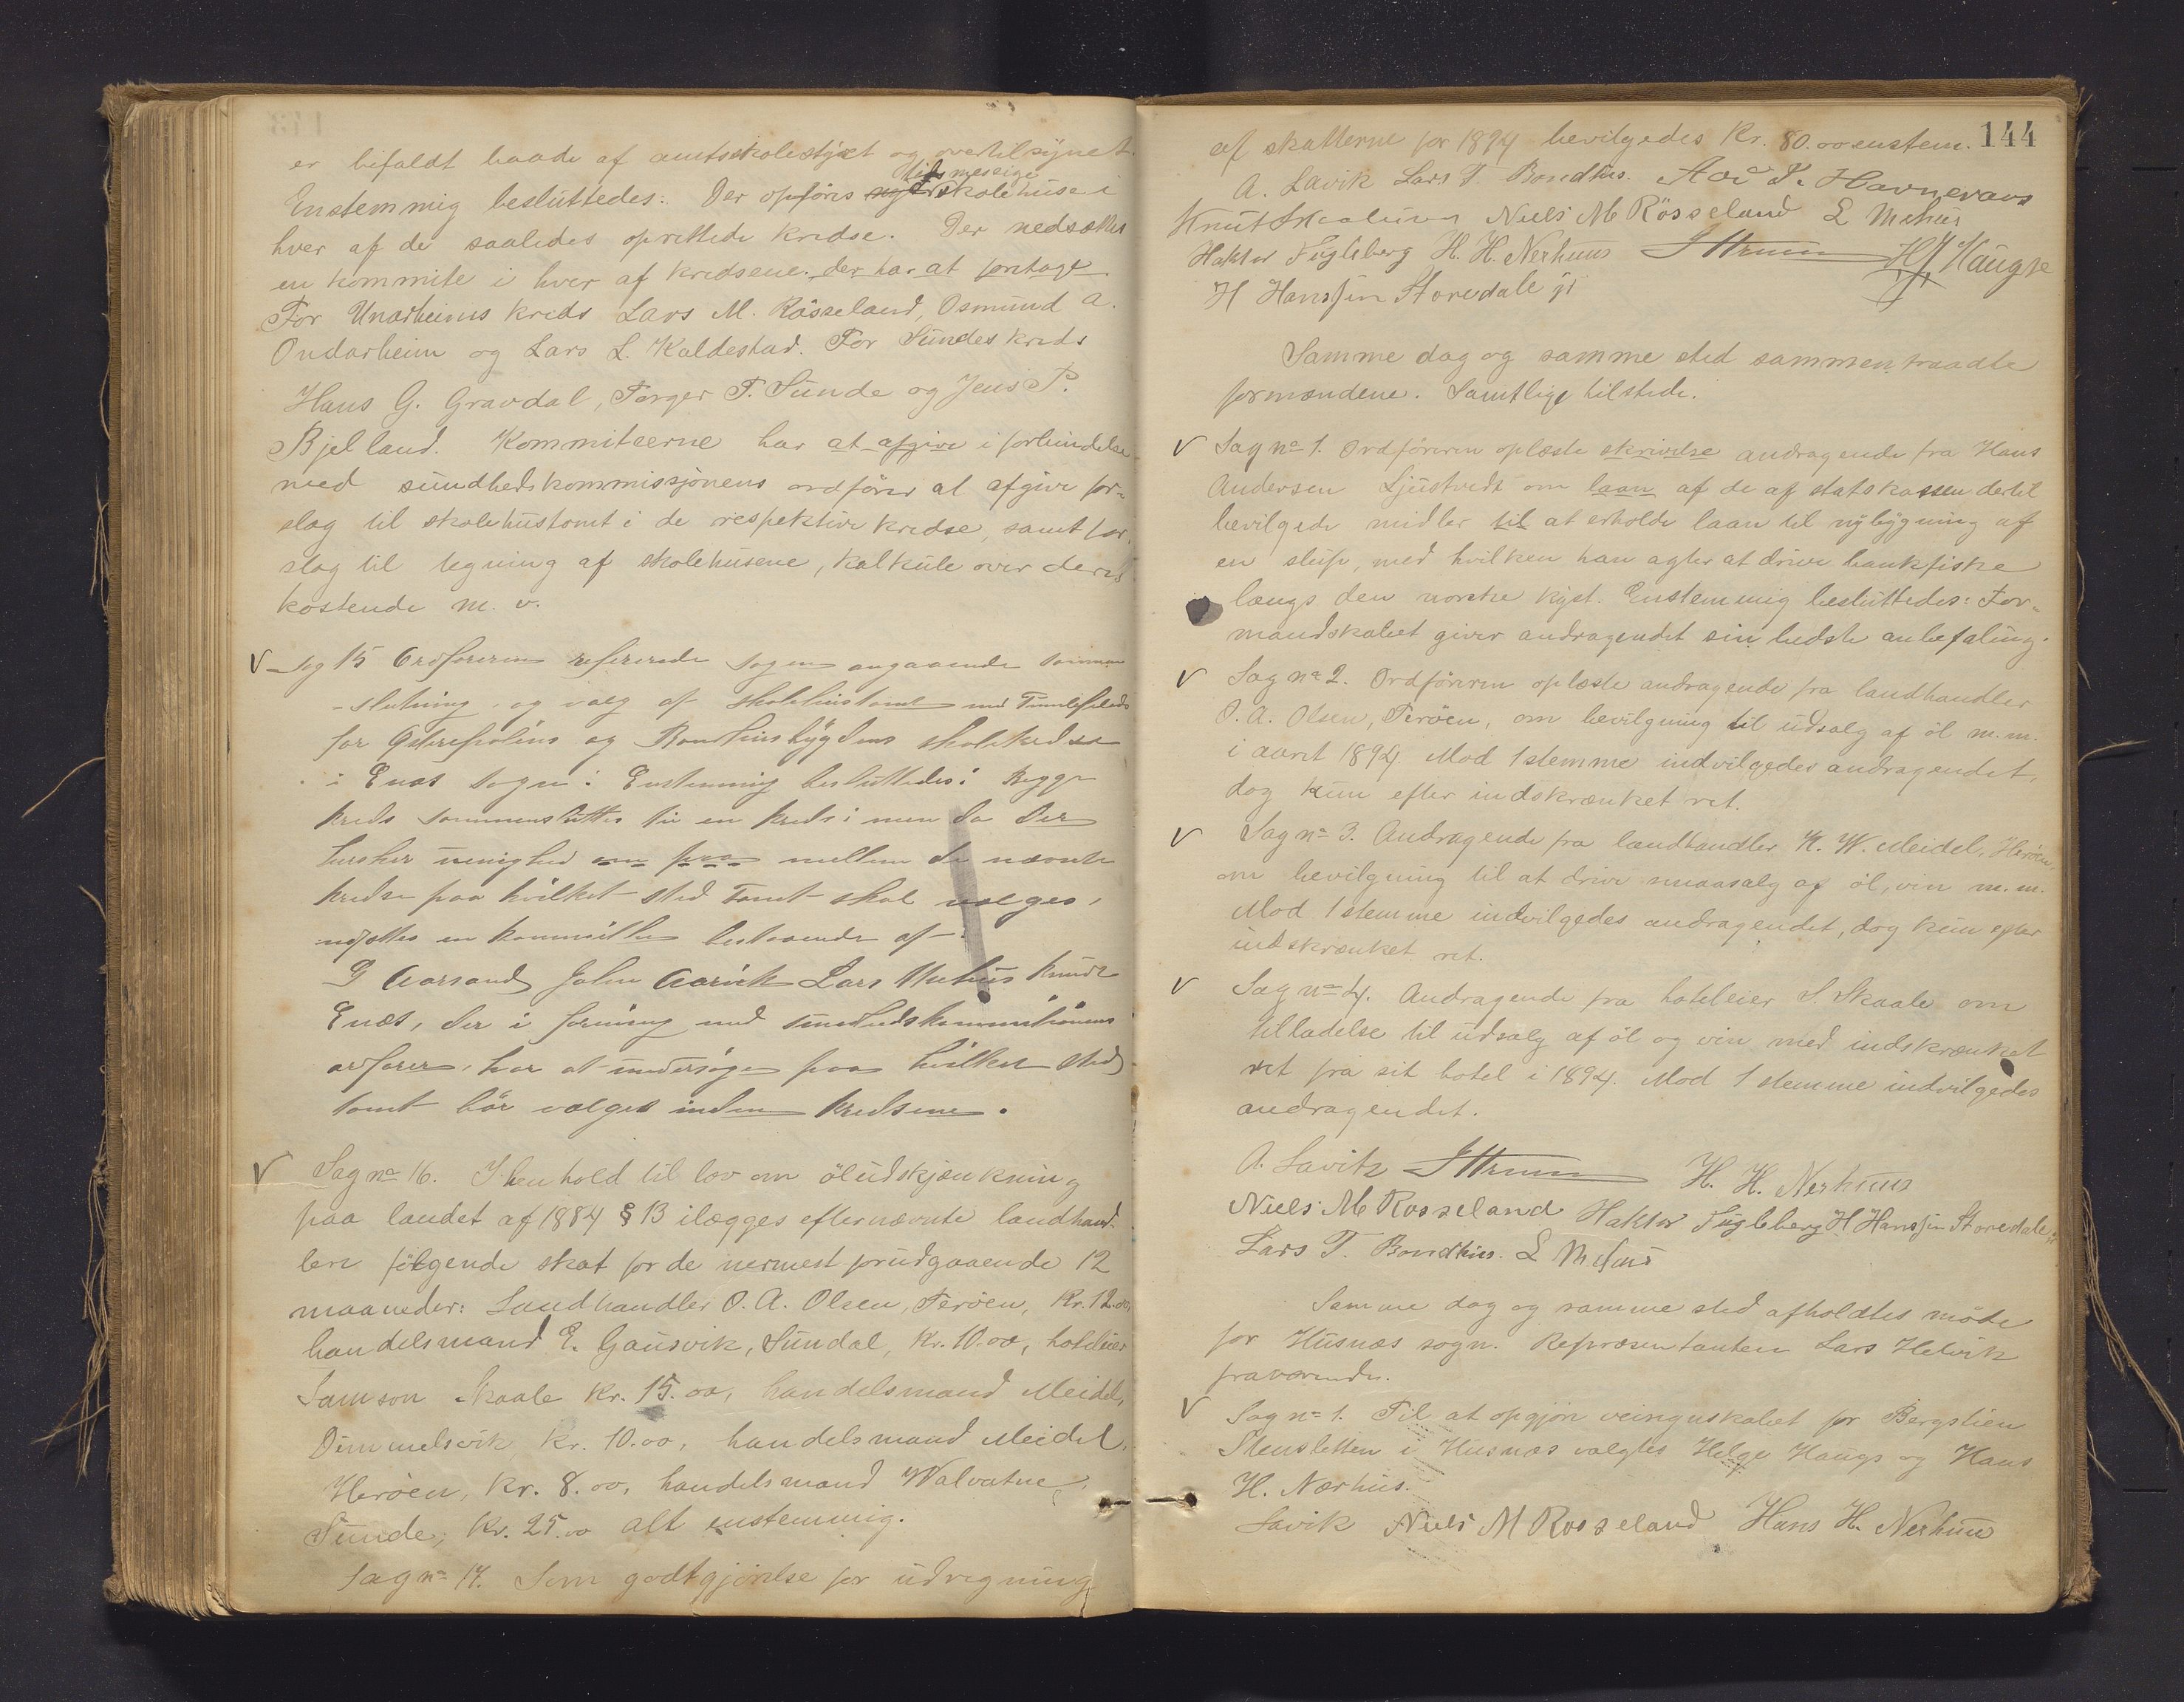 er bifaldt baade af amtsskolestyret og overtilsynet.
Enstemmig besluttedes: Der opføres nye tidsmessige skolehuse i
hver af de saaledes oprettede kredse. Der nedsættes
en kommite i hver af kredsene. der har at foretage
For Unarheims kreds Lars M. Røsseland, Osmund A.
Ondarheim og Lars L. Kaldestad. For Sundes kreds
Hans G. Gravdal, Torger T. Sunde og Jens P.
Bjelland. Kommiteerne har at afgive i forbindelse
med sundhedskommissjonens ordfører at afgive for-
slag til skolehustomt i de respektive kredse, samt for-
slag til tegning af skolehusene, kalkule over deres
kostende m. v.
V Sag 15 Ordføreren refererede sagen angaaende sammen
-slutning og valg af skolehustomt
for og Bondhusbygdens skolekredse
i Enæs sogn: Enstemmig besluttedes: Begge
kreds sammensluttes til en kreds; men da der
hersker uenighed om paa mellem de nævnte
kredse paa hvilket sted tomt skal vælges,
nedsættes en kommitte bestaaende af:
G Aarsand John Aarvik Lars Mehus Knudt
Enæs, der i forening med sundhedskommissionens
ordfører, har at undersøge paa hvilket sted
tomt bør vælges inden kredsene.
V Sag no 16. I henhold til lov om øludskjænkning
paa landet af 1884 § 13 ilægges efternævnte landhand-
lere følgende skat for de nermest forudgaaende 12
maaneder: Landhandler O. A. Olsen, Terøen, Kr. 12.00,
handelsmand E. Gausvik, Sundal, Kr. 10.00, hoteleier
Samson Skaale Kr. 15.00, handelsmand Meidel,
Dimmelsvik Kr. 10.00, handelsmand Meidel,
Herøen, Kr. 8.00, handelsmand Valvatne,
Sunde, Kr. 25.00 alt enstemmig.
Sag no 17. Som godtgjørelse for udregning
144
af skatterne for 1894 bevilgedes Kr. 80.00 enstem.
A. Lavik Lars T. Bondhus.
Niels M Røsseland L Mehus
Haktor Fugleberg H. H. Nerhuus H Haugse
H Hanssen Storedale
Samme dag og samme sted sammentraadte
formændene. Samtlige tilstede.
V Sag no 1. Ordføreren oplæste skrivelse andragende fra Hans
Andersen Ljustvedt om laan af de af statskassen dertil
bevilgede midler til at erholde laan til nybygning af
en slup, med hvilken han agter at drive bankfiske
langs den norske kyst. Enstemmig besluttedes: For-
mandskabet giver andragendet sin bedste anbefaling.
V Sag no 2. Ordføreren oplæste andragende fra landhandler
O. A. Olsen, Terøen, om bevilgning til udsalg af øl m.m.
i aaret 1894. Mod 1 stemme indvilgedes andragendet,
dog kun efter indskrænket ret.
V Sag no 3. Andragende fra landhandler K. W. Meidel, Herøen
om bevilgning til at drive smaasalg af øl, vin m.m.
Mod 1 stemme indvilgedes andragendet, dog kun efter
indskrænket ret.
V Sag no 4. Andragende fra hoteleier S. Skaale om
tilladelse til udsalg af øl og vin med indskrænket
ret fra sit hotel i 1894. Mod 1 stemme indvilgedes
andragendet.
A. Lavik H. H. Nerhuus
Niels M Rosseland Haktor Fugleberg H Hanssen Storedale
Lars T. Bondhus. L Mehus
Samme dag og samme sted afholdtes møde
for Husnæs sogn. Repræsentanten Lars Helvik
fraværende.
V Sag no 1. Til at opgjøre veiregnskabet for Bergstien
Stensletten i Husnæs valgtes Helge Haugs og Hans
H. Nærhus.
Lavik Niels M Rosseland Hans H. Nerhuus